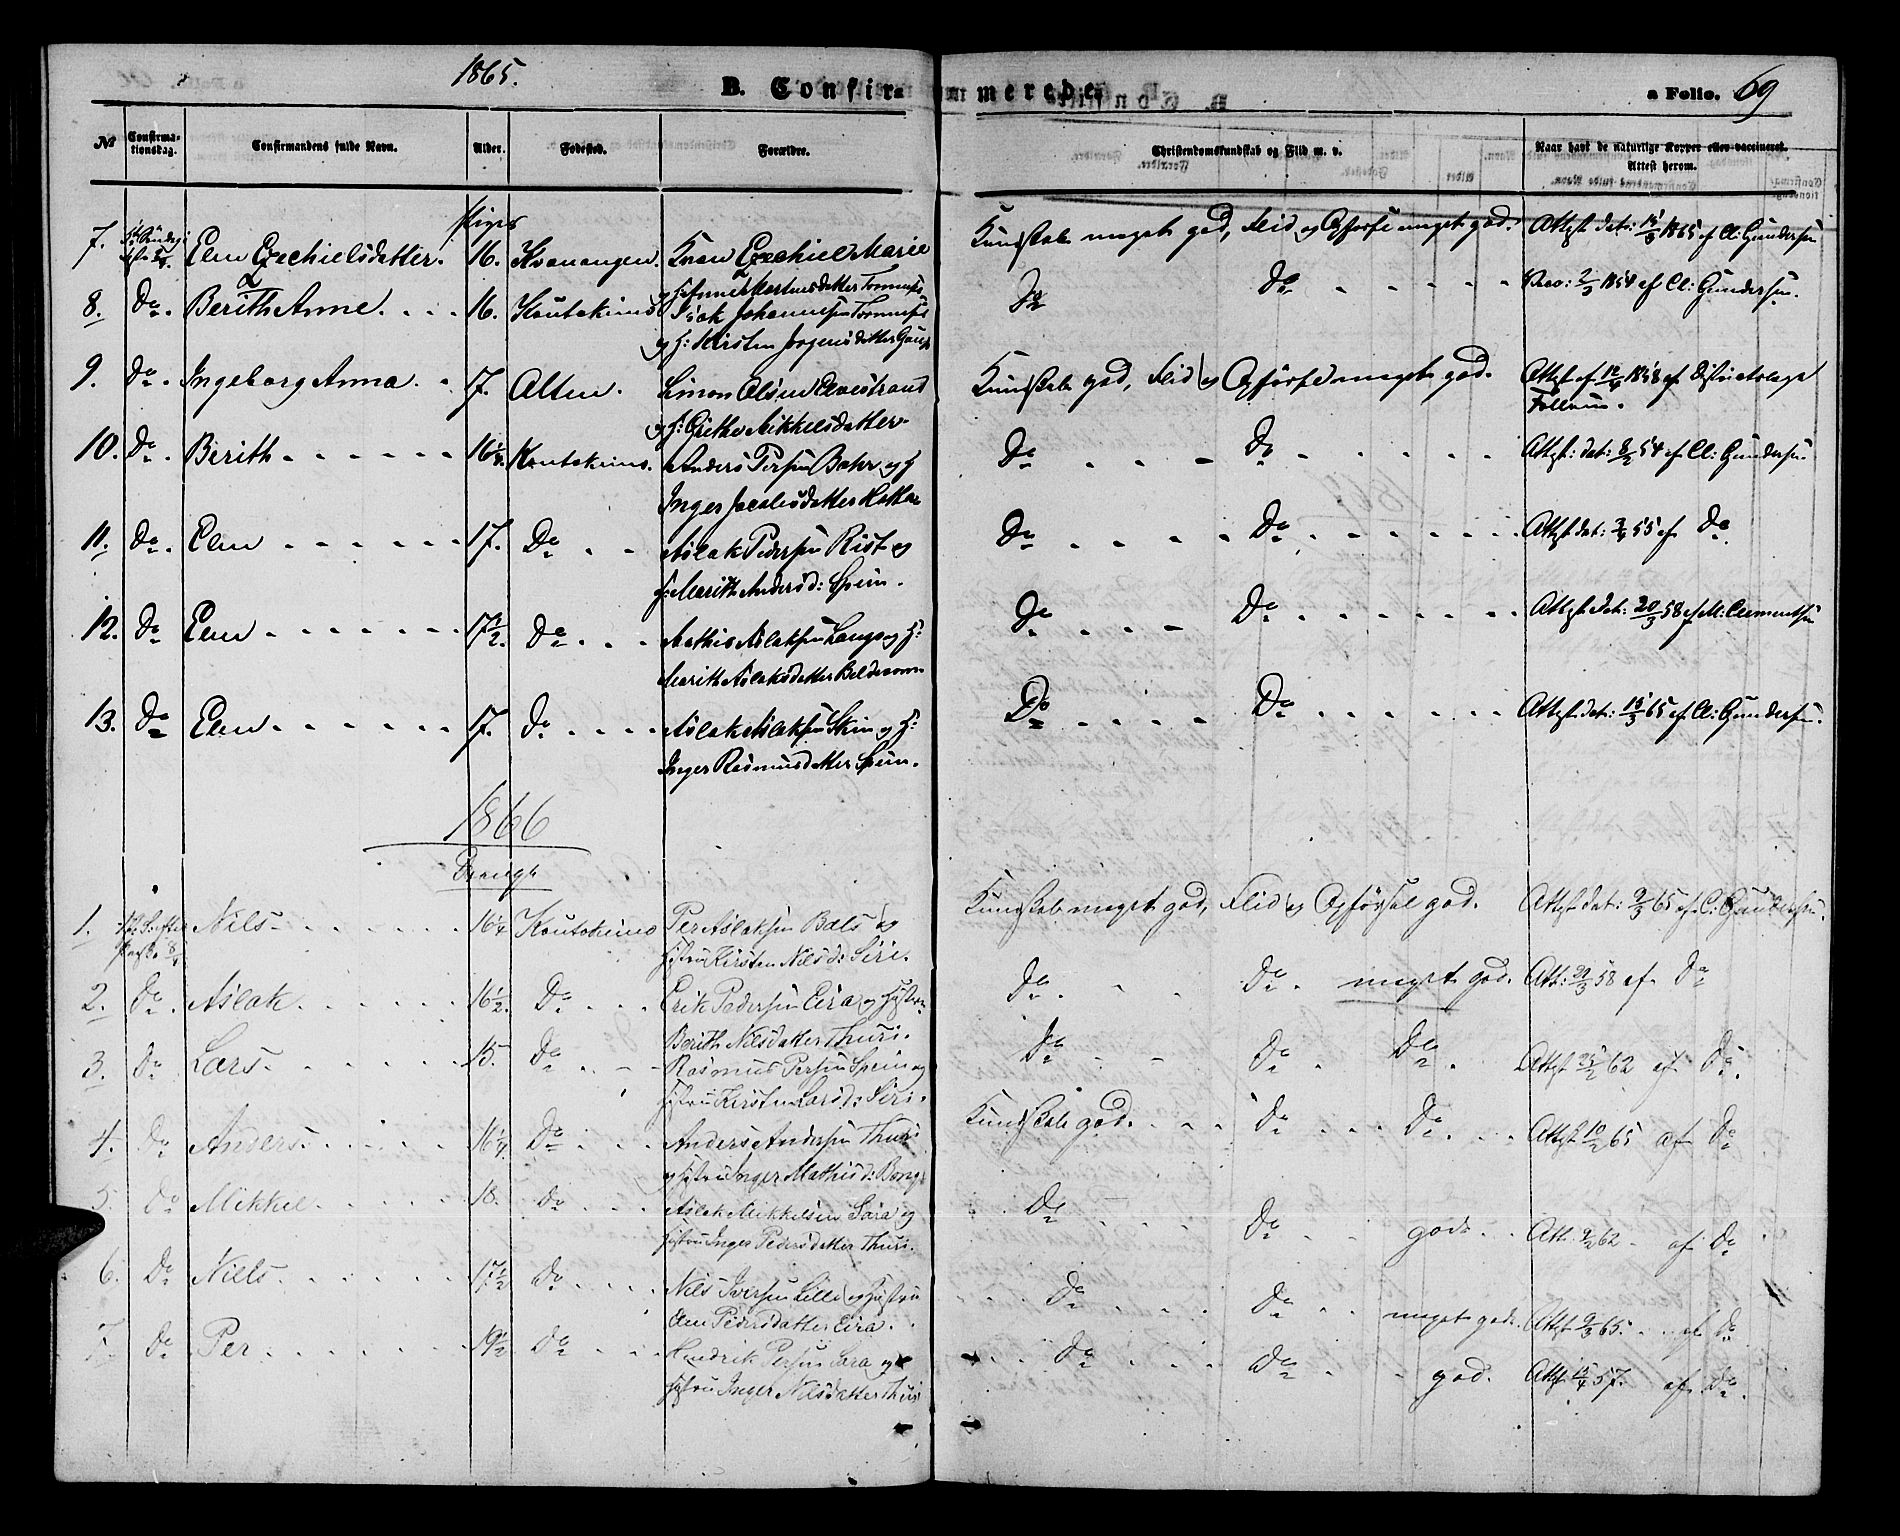 1865.
B. Confirmerede.
a Folio. 69
No
Confirmationsdag.
Confirmandens fulde Navn.
Alder.
Fødested.
Forældre.
Christendomskundskab og Flid m. v.
Naar havt de naturlige Kopper eller vaccineret.
Attest herom.
Piger
7. Elen Ezechielsdatter. 16. Kvænangen. Kvæn Ezechiel Marie Kundskab meget god, Flid og Opførsel meget god. Attest dat: 15/3 1865 af Cl: Gundersen
8. Do. Berith Anne. 16. Koutokeino Isak Johannesen Do Do 1854 af Cl: Gundersen.
og H: Kirsten Jørgensdatter Gaup
9. Do. Ingeborg Anna. 17. Alten. Simon Olsen Elvestrand Kundskab god, Flid og Opførsel meget god. Attest af 1858 af Districtslæge
og H: Grethe Mikkelsdatter. Follum.
10. Do. Berith 16 1/2. Koutokeino. Anders Persen Bahr og H Do Do Attest: dat: 8/2 54 af Cl: Gundersen
Inger Jacobsdatter Hætta
11. Do. Elen 17. Do Aslak Pedersen Rist og Do Do Attest dat: 55 af Do
H: Marith Andersd: Spein.
12. Do Elen 17 1/2. Do Mathis Aslaksen Lango og H: Do Do Attest dat: 20/3 58 af M. Clementsen
Marith Aslaksdatter
13. Do Elen 17. Do Aslak Aslaksen Skin og H: Do Do Attest dat: 15/3 65 af Cl: Gundersen.
Inger Rasmusdatter Spein.
1866
Drenge
1. Nils 16 1/4 Koutokeino Per Aslaksen Bals og Kundskab meget god, Flid og Opførsel god. Attest dat: 9/3 65 af C: Gundersen.
Hustru Kirsten Nilsd: Siri.
2. Do. Aslak 16 1/2. Do Erik Pedersen Eira og Hustru Do. Do. meget god. Att: 29/3 58 af Do
Berith Nilsdatter Thuri.
3. Do Lars 15. Do Rasmus Persen Spein og Do Do Do. Attest 25/2 62 af Do.
Hustru Kirsten Larsd: Siri.
4. Do Anders 16 1/4. Do Anders Andersen Thuri Kundskab god. Do Do. Attest 10/2 65 af Do
og Hustru Inger Mathisd: Bongo
5. Do Mikkel 18. Do Aslak Mikkelsen Sara og Do Do god. Att: 9/2 62 af Do
Hustru Inger Pedersdatter Thuri.
6. Do Niels 17 1/2 Do Nils Iversen Lille og Hustru Do Do meget god. Attest 9/3 65. af Do
Elen Pedersdatter Eira.
7. Do Per 19 1/2 Do Hendrik Persen Sara og Do Do god. Attest 15/4 57. af Do.
Hustru Inger Nilsdatter Thuri